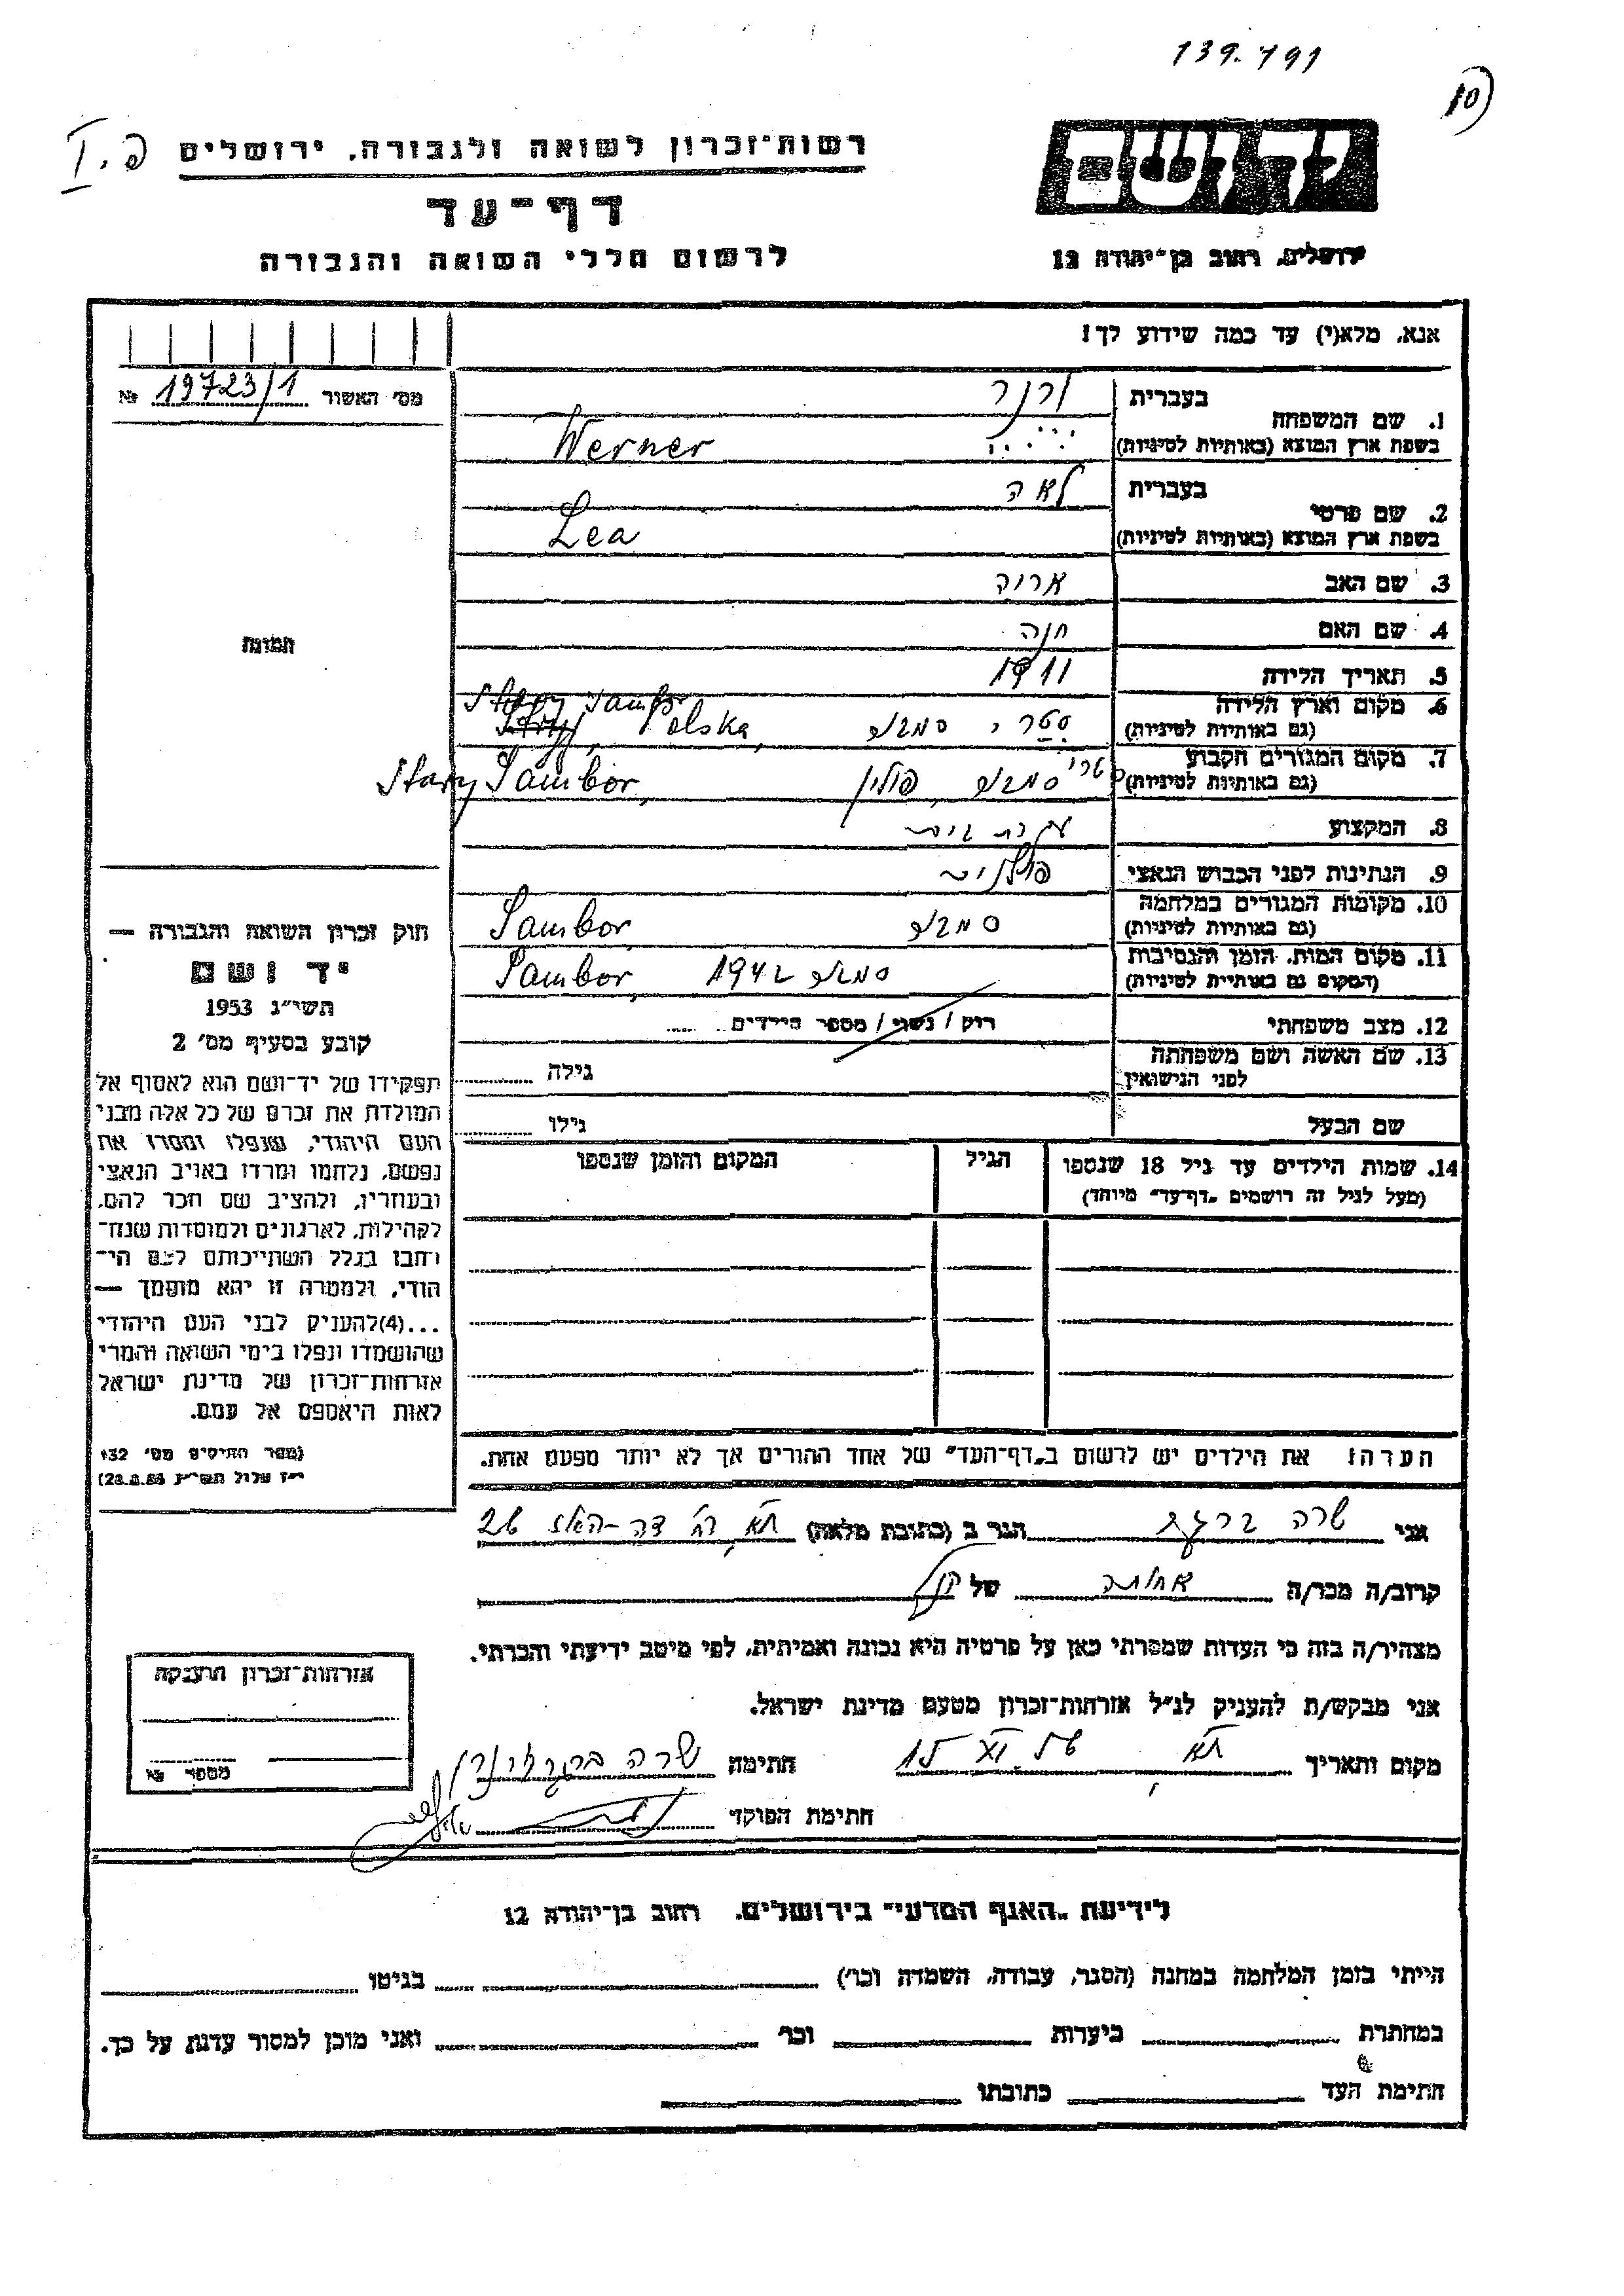 139.191
10
פ. I
רשות־זכרון לשואה ולגבורה, ירושלים
דף־עד
לרשום חללי השואה והגבורה
יד ושם
ירושלים, רחוב בן־יהודה 12
אנא, מלא(י) עד כמה שידוע לך!
מס׳ האשור 19723/1 №
1. שם המשפחה
בעברית ורנר
בשפת ארץ המוצא (באותיות לטיניות) Werner
2. שם פרטי
בעברית לאה
בשפת ארץ המוצא (באותיות לטיניות) Lea
3. שם האב אריה
4. שם האם חנה
תמונה
5. תאריך הלידה 1911
6. מקום וארץ הלידה
(גם באותיות לטיניות) סטרי סמבור Stary Sambor Polska,
7. מקום המגורים הקבוע
(גם באותיות לטיניות) סטרי סמבור, פולין Stary Sambor,
8. המקצוע עקרת בית
9. הנתינות לפני הכבוש הנאצי פולנית
10. מקומות המגורים במלחמה
(גם באותיות לטיניות) סמבור Sambor,
11. מקום המות, הזמן והנסיבות
(המקום גם באותיות לטיניות) סמבור 1942 Sambor,
12. מצב משפחתי רוק / נשוי / מספר הילדים
13. שם האשה ושם משפחתה
לפני הנישואין גילה
שם הבעל גילו
14. שמות הילדים עד גיל 18 שנספו הגיל המקום והזמן שנספו
(מעל לגיל זה רושמים „דף־עד״ מיוחד)
חוק זכרון השואה והגבורה —
יד ושם
תשי״ג 1953
קובע בסעיף מס׳ 2
תפקידו של יד־ושם הוא לאסוף אל
המולדת את זכרם של כל אלה מבני
העם היהודי, שנפלו ומסרו את
נפשם, נלחמו ומרדו באויב הנאצי
ובעוזריו, ולהציב שם וזכר להם,
לקהילות, לארגונים ולמוסדות שנח־
רבו בגלל השתייכותם לעם הי־
הודי, ולמטרה זו יהא מוסמך —
...(4)להעניק לבני העם היהודי
שהושמדו ונפלו בימי השואה והמרי
אזרחות־זכרון של מדינת ישראל
לאות היאספם אל עמם.
(ספר החוקים מס׳ 132
הערה! את הילדים יש לרשום ב„דף־העד״ של אחד ההורים אך לא יותר מפעם אחת.
אני שרה הגר ב (כתובת מלאה) ת״א, רח׳ 26
קרוב/ה מכר/ה אחותה של
מצהיר/ה בזה כי העדות שמסרתי כאן על פרטיה היא נכונה ואמיתית, לפי מיטב ידיעתי והכרתי.
אני מבקש/ת להעניק לנ״ל אזרחות־זכרון מטעם מדינת ישראל.
מקום ותאריך ת״א חתימה שרה
חתימת הפוקד
אזרחות־זכרון הוענקה
מספר №
לידיעת „האגף המדעי״ בירושלים, רחוב בן־יהודה 12
הייתי בזמן המלחמה במחנה (הסגר, עבודה, השמדה וכו׳) בגיטו
במחתרת ביערות וכו׳ ואני מוכן למסור עדות על כך.
חתימת העד כתובתו